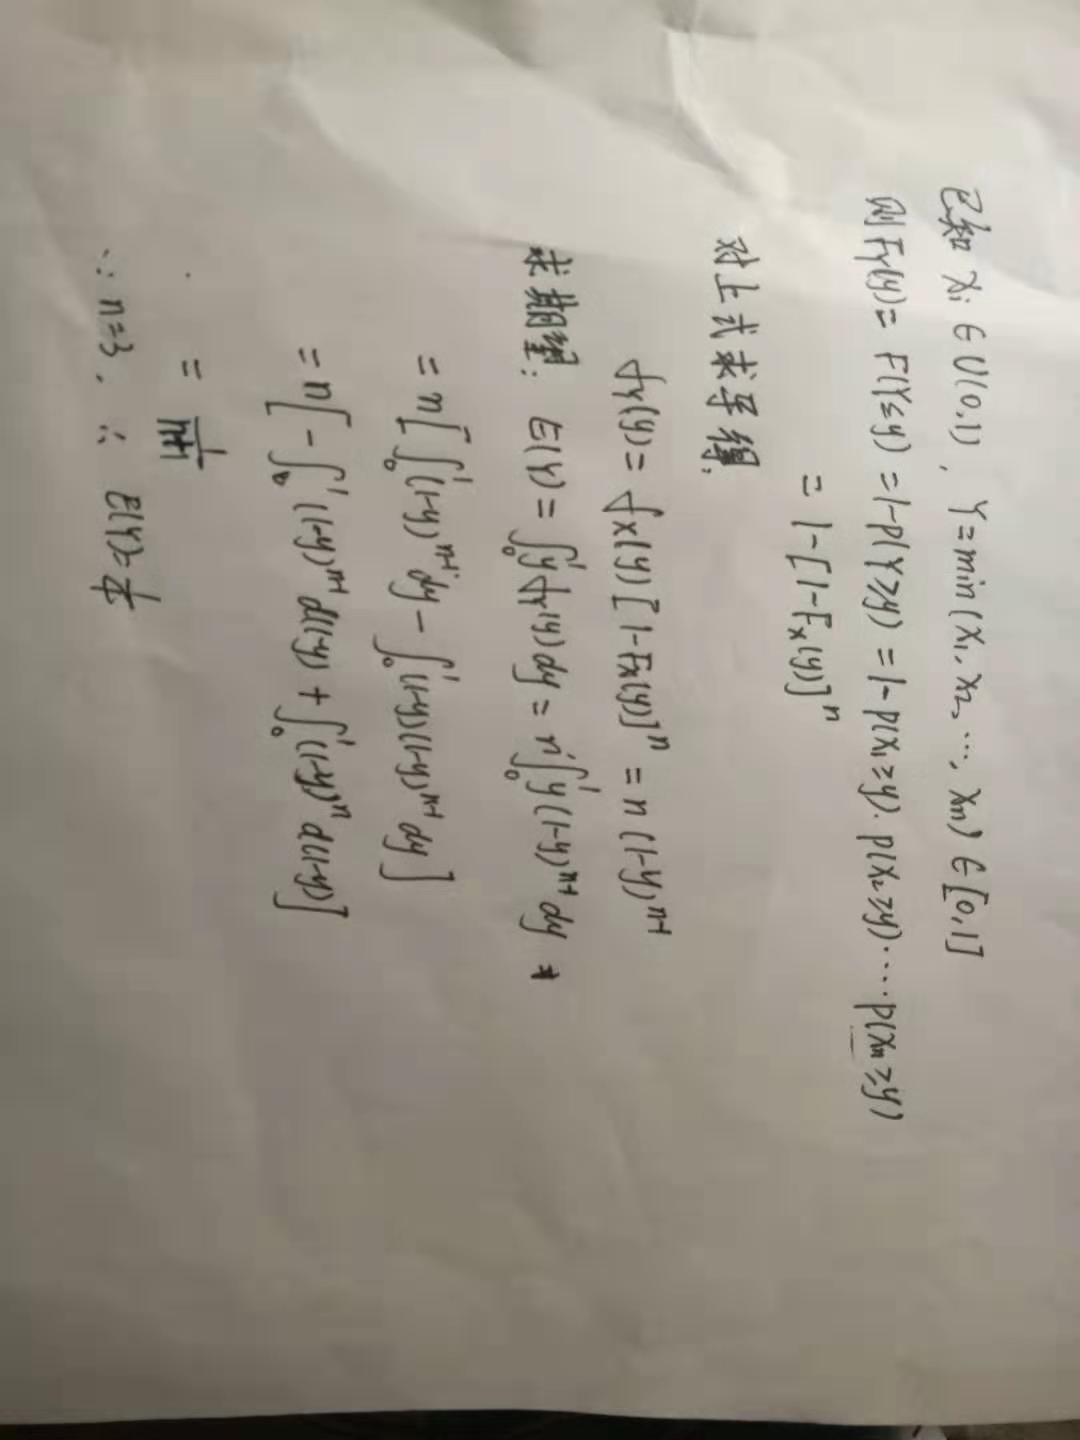 已知 Xi ∈ U(0,1), Y=min(X₁, X₂, ⋯, Xn) ∈ [0,1]
则 F_Y(y) = F(Y≤y) = 1-P(Y≥y) = 1-P(X₁≥y)·P(X₂≥y)⋯⋯P(Xn≥y)
= 1-[1-F_X(y)]^n
对上式求导得,
f_Y(y) = f_X(y)[1-F_X(y)]^n = n(1-y)^{n-1}
求期望: E(Y) = ∫₀¹ y f_Y(y) dy = n∫₀¹ y(1-y)^{n-1} dy
= n[∫₀¹ (1-y)^{n-1} dy - ∫₀¹ (1-y)(1-y)^{n-1} dy]
= n[-∫₀¹ (1-y)^{n-1} d(1-y) + ∫₀¹ (1-y)^n d(1-y)]
= 1/(n+1)
∵ n=3, ∴ E(Y)=1/4